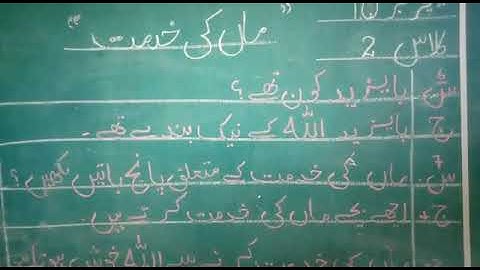 کلاس 2
"ماں کی خدمت"
س6۔ بایزید کون تھے؟
ج۔ بایزید اللہ کے نیک بندے تھے۔
س7۔ ماں کی خدمت کے متعلق پانچ باتیں لکھیں؟
ج۔ اچھے بچے ماں کی خدمت کرتے ہیں۔
ماں کی خدمت کرنے سے اللہ خوش ہوتا